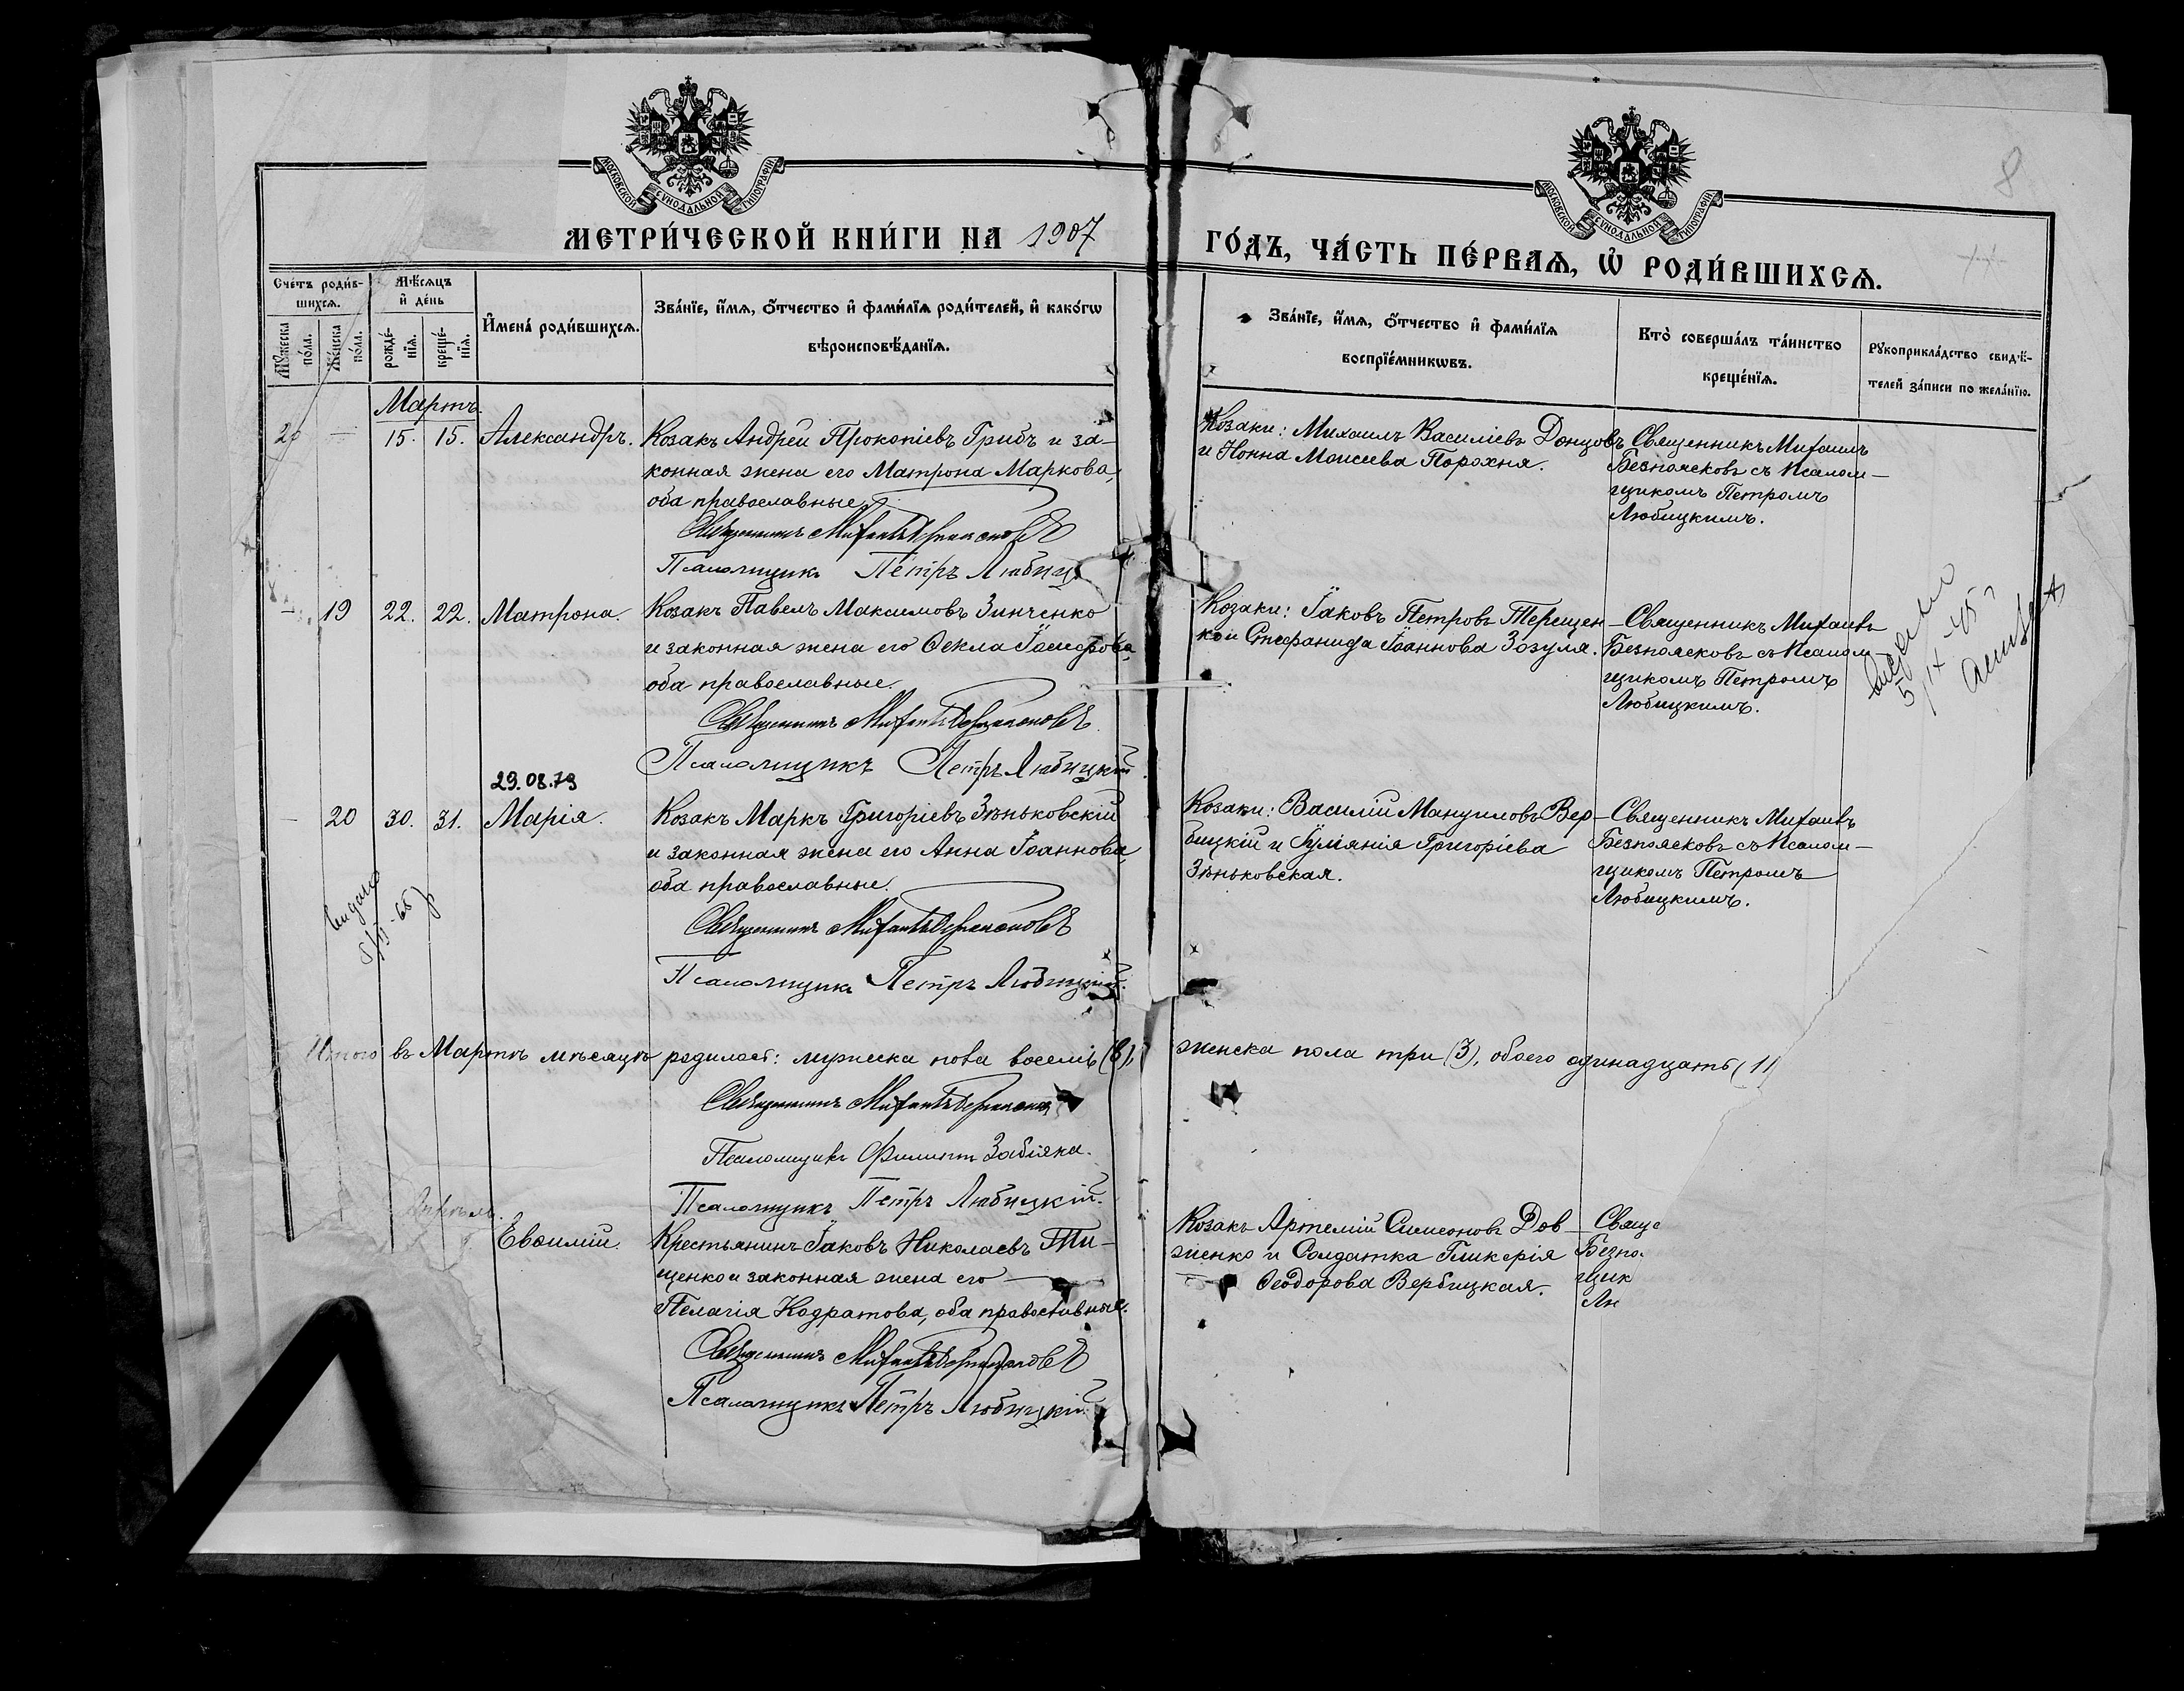 МОСКОВСКОЙ СѴНОДАЛЬНОЙ ТИПОГРАФІИ
МОСКОВСКОЙ СѴНОДАЛЬНОЙ ТИПОГРАФІИ
8
МЕТРИ́ЧЕСКОЙ КНИ́ГИ НА 1907
ГО́ДЪ, ЧА́СТЬ ПЕ́РВАѦ, Ѡ҆ РОДИ́ВШИХСѦ.
Сче́тъ роди́в-
шихсѧ.
Мѣ́сѧцъ
и҆ де́нь
Мꙋ́жеска по́ла.
Же́нска по́ла.
рожде́-
нїѧ.
креще́-
нїѧ.
И҆мена̀ роди́вшихсѧ.
Зва́нїе, и҆́мѧ, ѻ҆́тчество и҆ фами́лїѧ роди́телей, и҆ како́гѡ
вѣроисповѣ́данїѧ.
Зва́нїе, и҆́мѧ, ѻ҆́тчество и҆ фами́лїѧ
воспрїе́мникѡвъ.
Кто̀ соверша́лъ та́инство
креще́нїѧ.
Рꙋкоприкла́дство свидѣ́-
телей за́писи по жела́нїю.
Мартъ.
20 — 15. 15. Александръ.
Козакъ Андрей Прокопіевъ Грибъ и за-
конная жена его Матрона Маркова,
оба православные.
Священникъ Михаилъ Безпоясковъ
Псаломщикъ Петръ Любиц
Козаки: Михаилъ Василіевъ Донцовъ
и Нонна Моисеева Порохня.
Священникъ Михаилъ
Безпоясковъ съ Псалом-
щикомъ Петромъ
Любицкимъ.
— 19 22. 22. Матрона.
Козакъ Павелъ Максимовъ Зинченко
и законная жена его Ѳекла Іосифова,
оба православные.
Священникъ Михаилъ Безпоясковъ.
Псаломщикъ Петръ Любицкій
Козаки: Іаковъ Петровъ Терещен-
ко и Стефанида Іоаннова Зозуля.
Священникъ Михаилъ
Безпоясковъ съ Псалом
щикомъ Петромъ
Любицкимъ.
5/IX-45
29.08.79
— 20 30. 31. Марія.
Козакъ Маркъ Григоріевъ Зѣньковскій
и законная жена его Анна Іоаннова,
оба православные.
Священникъ Михаилъ Безпоясковъ
Псаломщикъ Петръ Любицкій.
Козаки: Василій Мануиловъ Вер-
бицкій и Іуліанія Григоріева
Зѣньковская.
Священникъ Михаилъ
Безпоясковъ съ Псалом-
щикомъ Петромъ
Любицкимъ.
Видано
Итого въ Мартѣ мѣсяцѣ родилось: мужска пола восемь (8),
женска пола три (3), обоего одинадцать (11
Священникъ Михаилъ Безпоясков
Псаломщикъ Филиппъ Забіяка.
Псаломщикъ Петръ Любицкій.
Апрѣль.
Евѳимій.
Крестьянинъ Іаковъ Николаевъ Ти-
щенко и законная жена его —
Пелагія Кодратова, оба православные.
Священникъ Михаилъ Безпоясковъ
Псаломщикъ Петръ Любицкій.
Козакъ Артемій Симеоновъ Дов-
женко и Солдатка Гликерія
Ѳеодорова Вербицкая.
Свяще
Безпо
щик
Лю